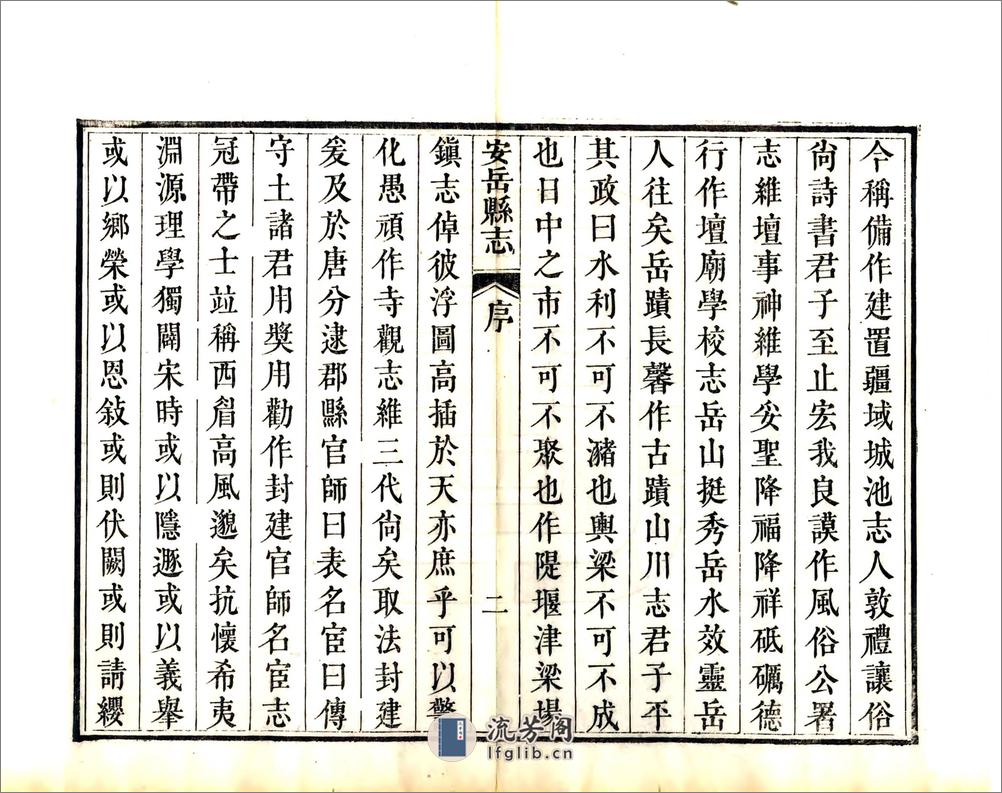 今稱備作建置疆域城池志人敦禮讓俗
尙詩書君子至止宏我良謨作風俗公署
志維壇事神維學妥聖降福降祥砥礪德
行作壇廟學校志岳山挺秀岳水效靈岳
人往矣岳蹟長馨作古蹟山川志君子平
其政曰水利不可不瀦也輿梁不可不成
也日中之市不可不聚也作隄堰津梁場
安岳縣志
序
二
鎭志倬彼浮圖高插於天亦庶乎可以警
化愚頑作寺觀志維三代尙矣取法封建
爰及於唐分逮郡縣官師曰表名宦曰傳
守土諸君用奬用勸作封建官師名宦志
冠帶之士竝稱西眉高風邈矣抗懷希夷
淵源理學獨闢宋時或以隱遯或以義舉
或以鄉榮或以恩敍或則伏闕或則請纓
流芳阁
lfglib.cn